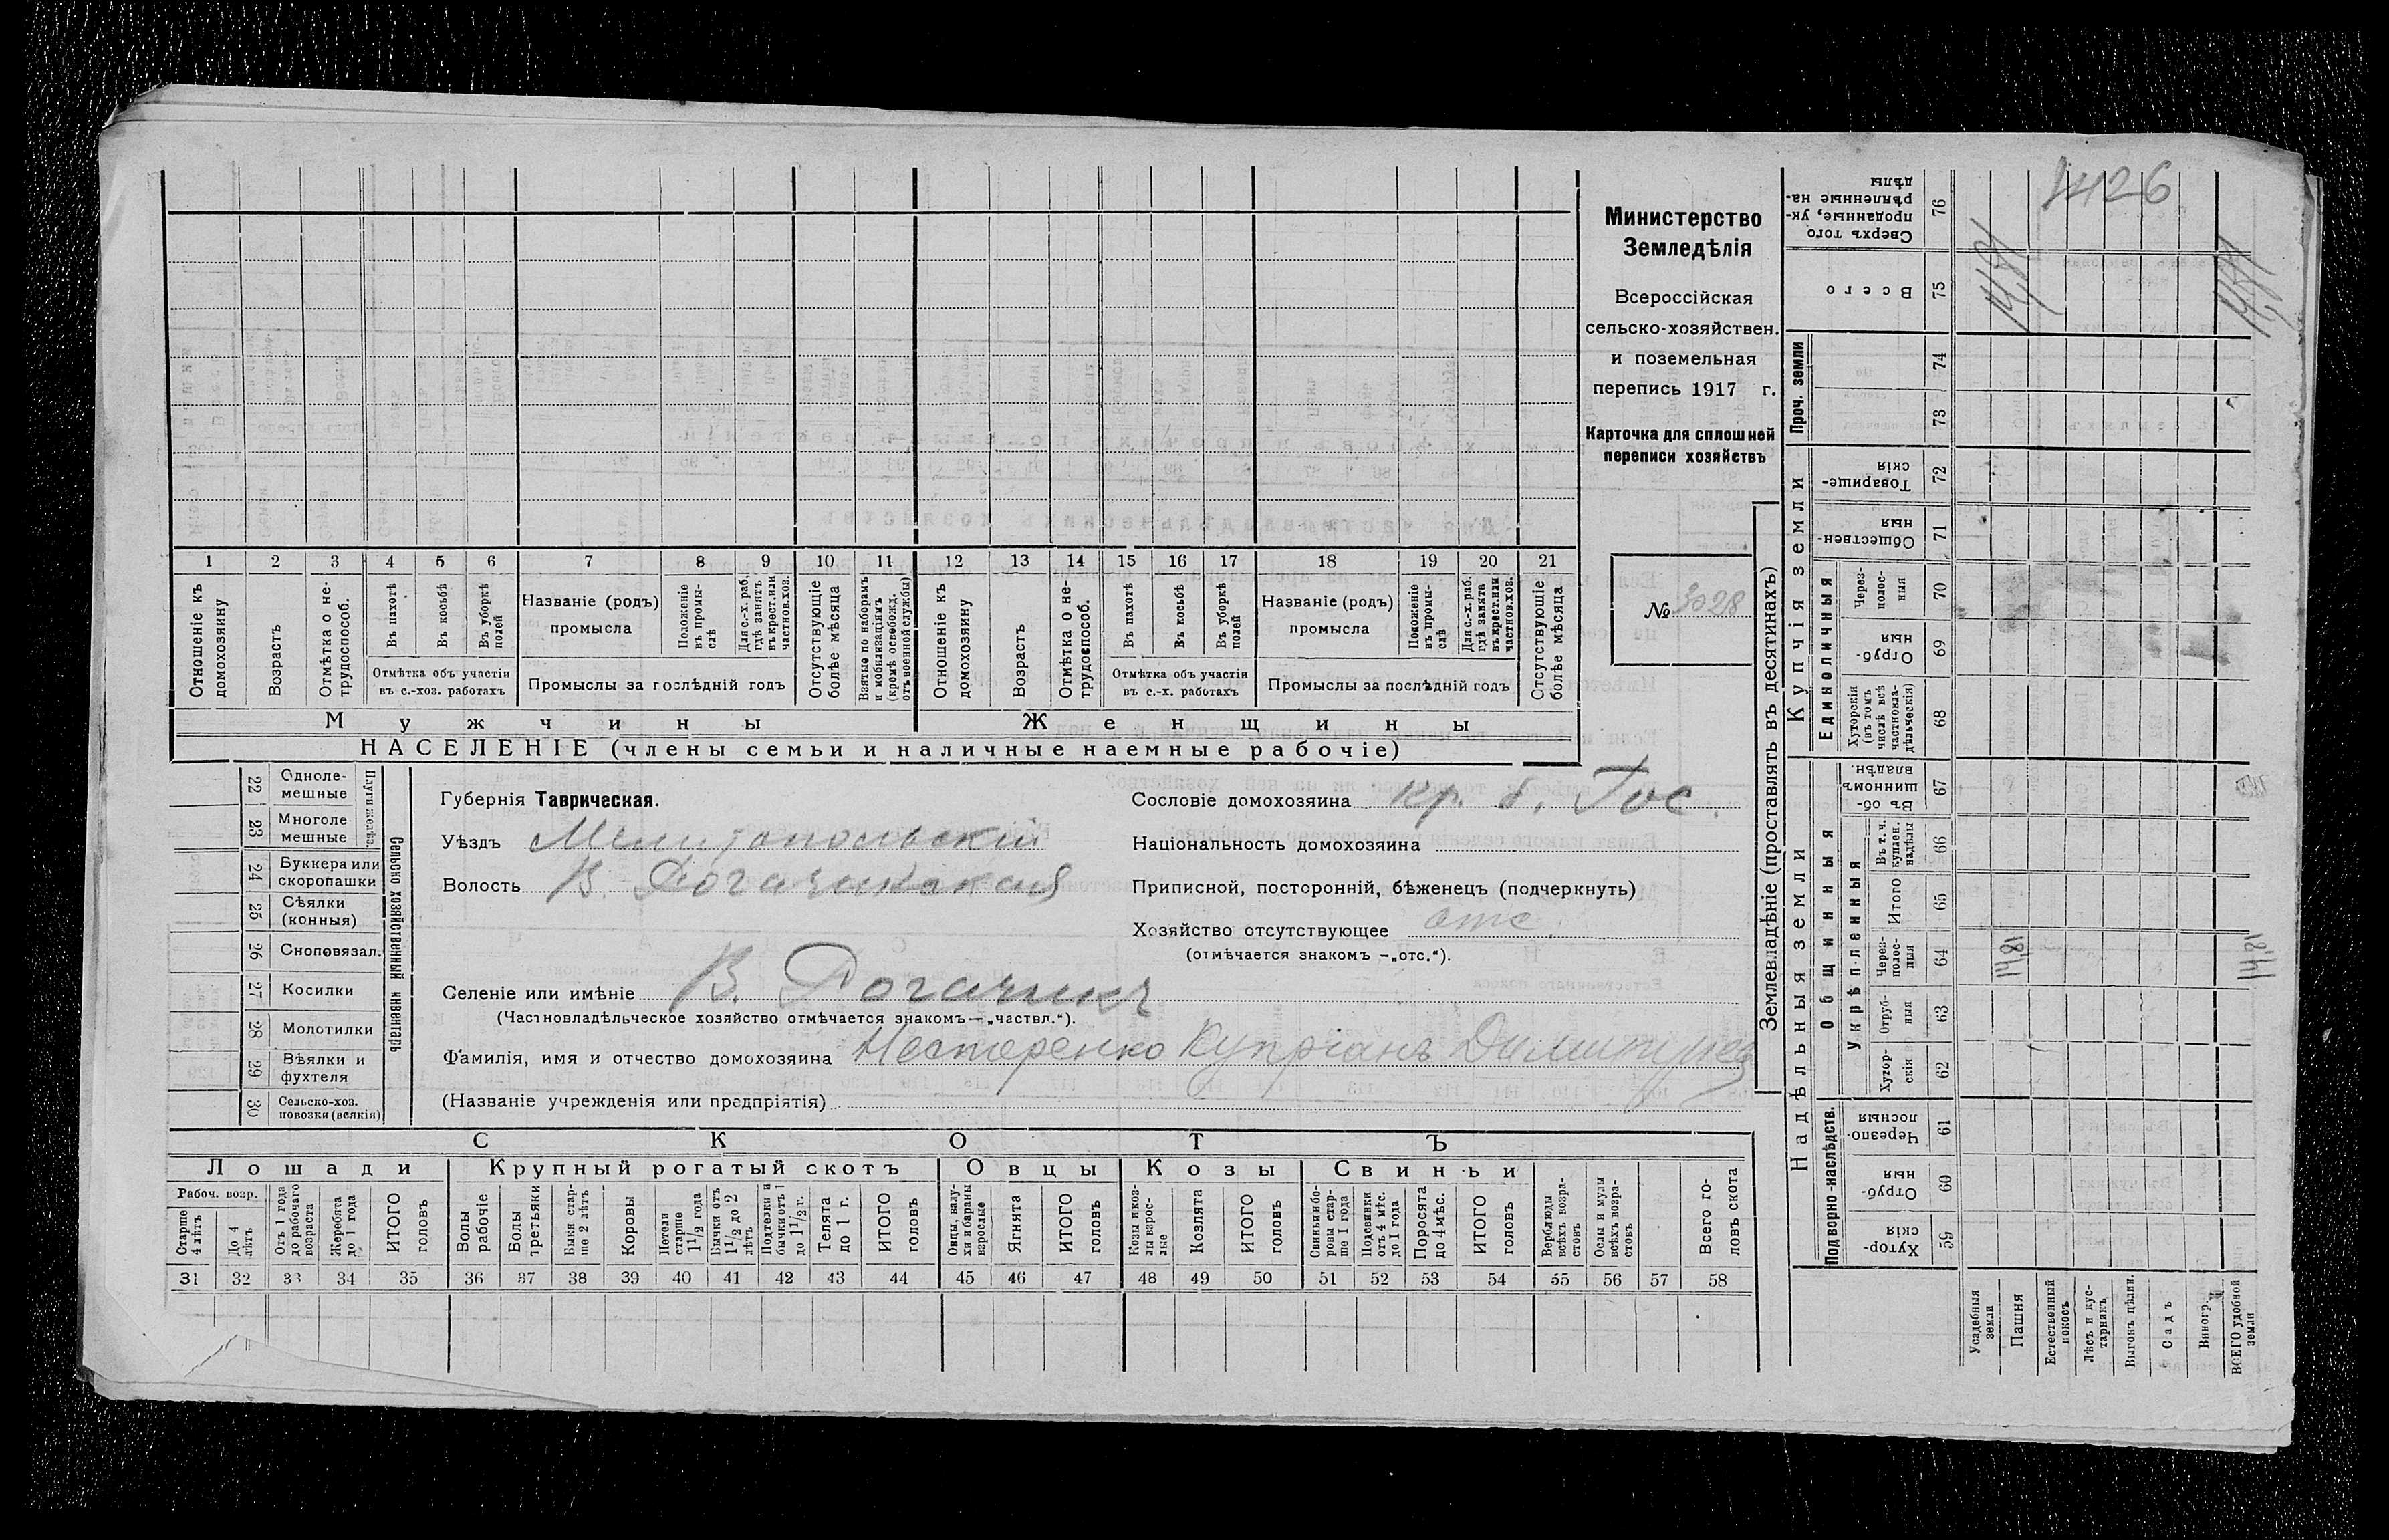 1426
Министерство
Земледѣлія
Всероссійская
сельско-хозяйствен.
и поземельная
перепись 1917 г.
Карточка для сплошной
переписи хозяйствъ
№ 3028
1 2 3 4 5 6 7 8 9 10 11 12 13 14 15 16 17 18 19 20 21
Отношеніе къ домохозяину
Возрастъ
Отмѣтка о не-трудоспособ.
Въ пахотѣ
Въ косьбѣ
Въ уборкѣ полей
Отмѣтка объ участіи въ с.-хоз. работахъ
Названіе (родъ) промысла
Положеніе въ промы-слѣ
Для с.-х. раб. гдѣ занятъ въ крест. или частнов. хоз.
Промыслы за послѣдній годъ
Отсутствующіе болѣе мѣсяца
Взятые по наборамъ и мобилизаціямъ (кромѣ освобожд. отъ военной службы)
Отношеніе къ домохозяину
Возрастъ
Отмѣтка о не-трудоспособ.
Въ пахотѣ
Въ косьбѣ
Въ уборкѣ полей
Отмѣтка объ участіи въ с.-х. работахъ
Названіе (родъ) промысла
Положеніе въ промы-слѣ
Для с.-х. раб. гдѣ занята въ крест. или частнов. хоз.
Промыслы за послѣдній годъ
Отсутствующіе болѣе мѣсяца
Мужчины Женщины
НАСЕЛЕНІЕ (члены семьи и наличные наемные рабочіе)
22 Одноле-мешные
23 Многоле мешные
Плуги желѣз.
24 Буккера или скоропашки
25 Сѣялки (конныя)
26 Сноповязал.
27 Косилки
28 Молотилки
29 Вѣялки и фухтеля
30 Сельско-хоз. повозки (всякія)
Сельско хозяйственный инвентарь
Губернія Таврическая.
Уѣздъ Мелитопольскій
Волость В. Рогачикская
Сословіе домохозяина кр. б. Гос.
Національность домохозяина
Приписной, посторонній, бѣженецъ (подчеркнуть)
Хозяйство отсутствующее отс.
(отмѣчается знакомъ -„отс.“).
Селеніе или имѣніе В. Рогачикъ
(Частновладѣльческое хозяйство отмѣчается знакомъ—„частвл.“).
Фамилія, имя и отчество домохозяина Нестеренко Купріанъ Димитріев
(Названіе учрежденія или предпріятія)
СКОТЪ
Лошади Крупный рогатый скотъ Овцы Козы Свиньи
Рабоч. возр.
Старше 4 лѣтъ
До 4 лѣтъ
Отъ 1 года до рабочаго возраста
Жеребята до 1 года
ИТОГО головъ
Волы рабочіе
Волы третьяки
Быки стар-ше 2 лѣтъ
Коровы
Нетели старше 1 1/2 года
Бычки отъ 1 1/2 до 2 лѣтъ
Подтелки и бычки отъ 1 до 1 1/2 г.
Телята до 1 г.
ИТОГО головъ
Овцы, валу-хи и бараны взрослые
Ягнята
ИТОГО головъ
Козы и коз-лы взрос-лые
Козлята
ИТОГО головъ
Свиньи и бо-ровы стар-ше 1 года
Подсвинки отъ 4 мѣс. до 1 года
Поросята до 4 мѣс.
ИТОГО головъ
Верблюды всѣхъ возра-стовъ
Ослы и мулы всѣхъ возра-стовъ
Всего го-ловъ скота
31 32 33 34 35 36 37 38 39 40 41 42 43 44 45 46 47 48 49 50 51 52 53 54 55 56 57 58
Землевладѣніе (проставлять въ десятинахъ)
Надѣльныя земли Купчія земли Проч. земли
Подворно-наслѣдств.
Общинныя
Укрѣпленныя
Единоличныя
Сверхъ того проданные, ук-рѣпленные на-дѣлы 76
Всего 75 14,81 14,81
74
73
Товарище-скія 72
Обществен-ныя 71
Через-полос-ныя 70
Отруб-ныя 69
Хуторскія (въ томъ числѣ всѣ частновла-дѣльческія) 68
Въ об-щинномъ владѣн. 67
Въ т. ч. куплен. надѣлы 66
Итого 65
Через-полос-ныя 64 14,81 14,81
Отруб-ныя 63
Хутор-скія 62
Черезпо-лосныя 61
Отруб-ныя 60
Хутор-скія 59
Усадебныя земли
Пашня
Естественный покосъ
Лѣсъ и кус-тарникъ
Выгонъ цѣлин.
Садъ
Виногр.
ВСЕГО удобной земли